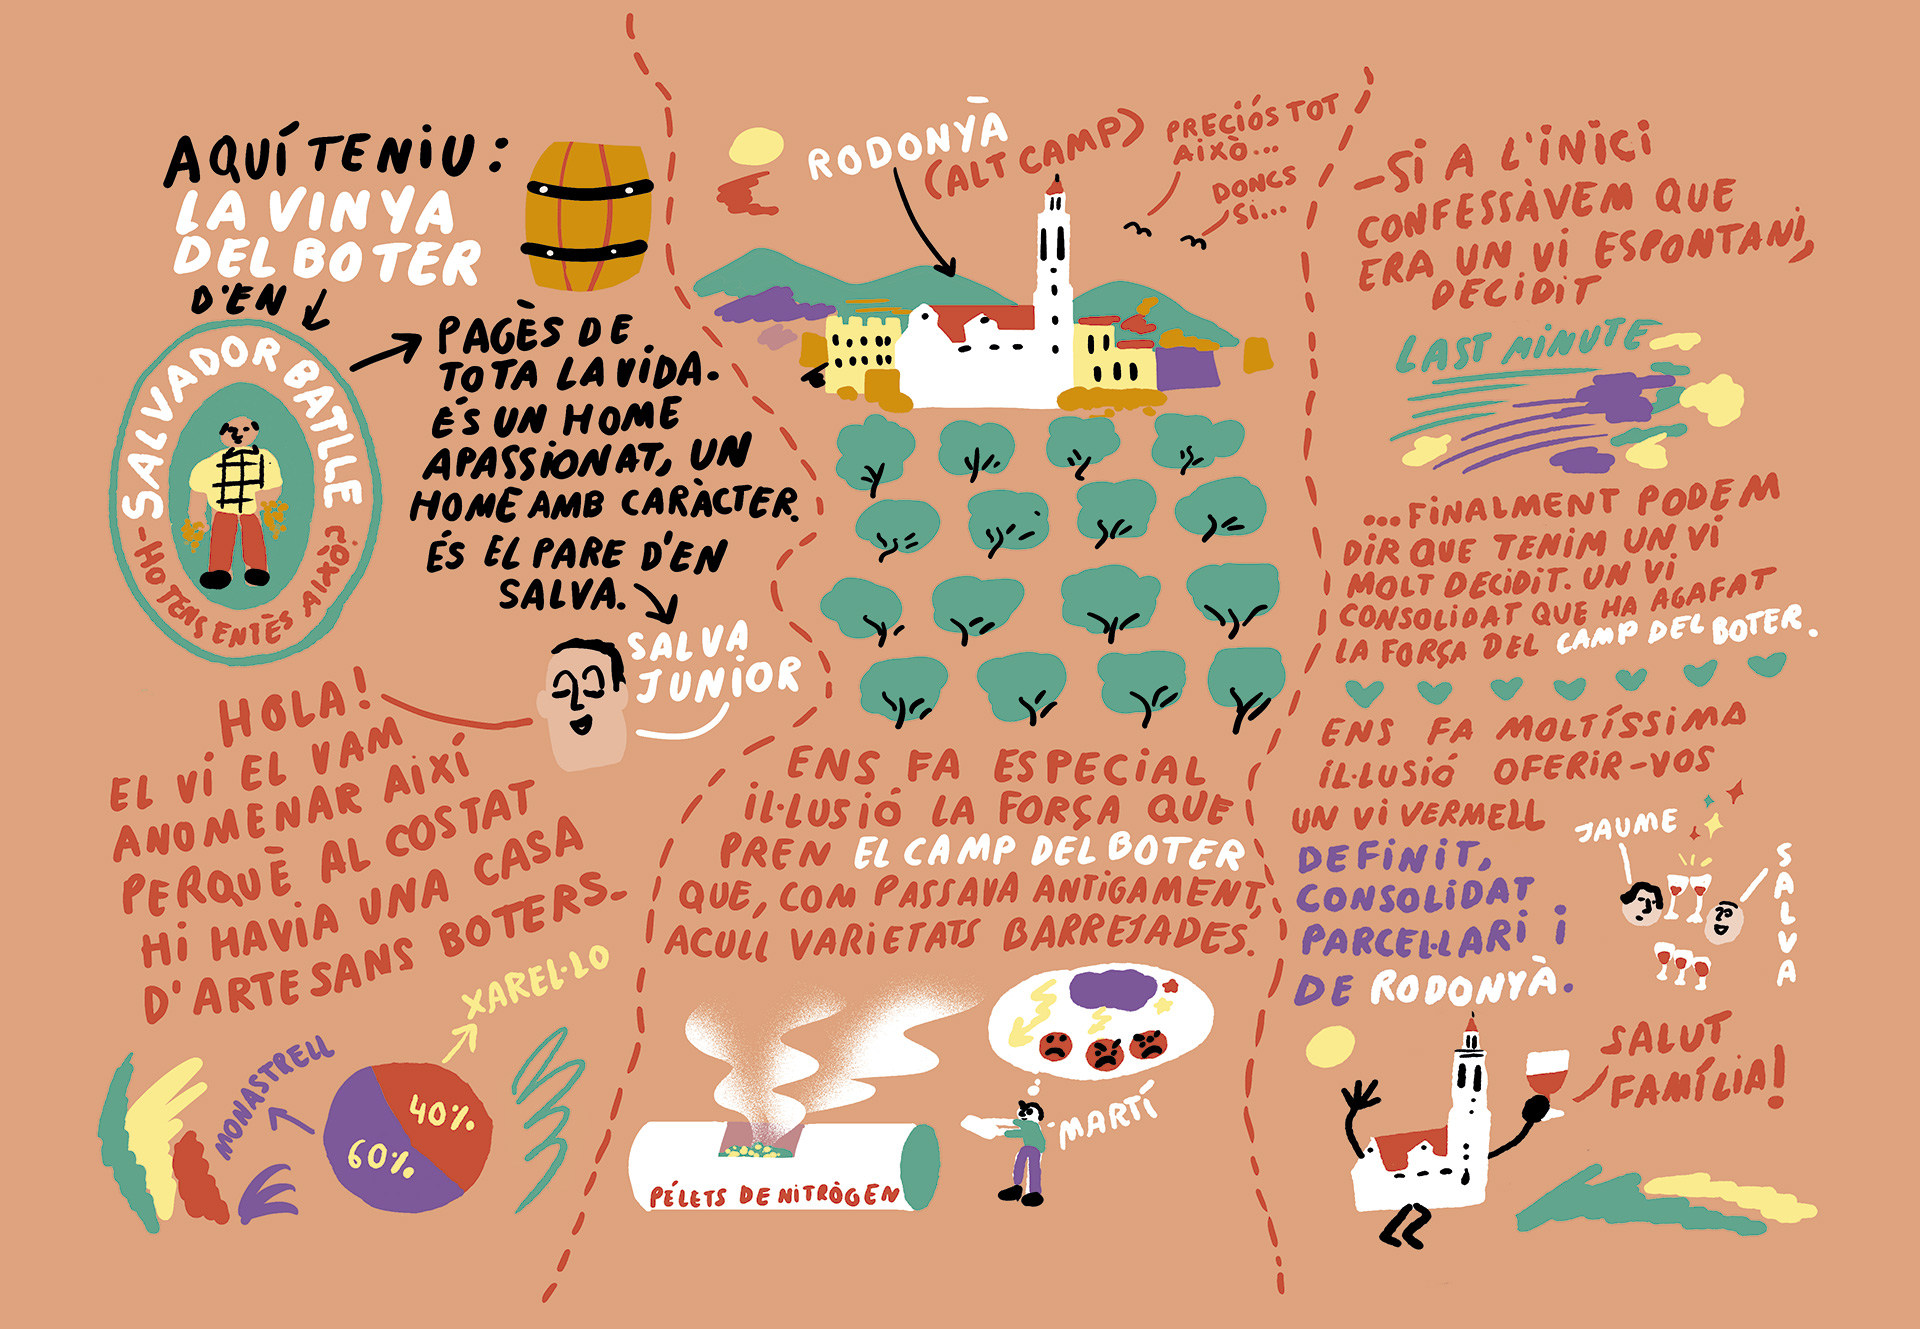 AQUÍ TENIU:
LA VINYA
DEL BOTER
D'EN
SALVADOR BATLLE
-HO TENS ENTÈS AIXÒ?
PAGÈS DE
TOTA LA VIDA.
ÉS UN HOME
APASSIONAT, UN
HOME AMB CARÀCTER.
ÉS EL PARE D'EN
SALVA.
SALVA
JUNIOR
HOLA!
EL VI EL VAM
ANOMENAR AIXÍ
PERQUÈ AL COSTAT
HI HAVIA UNA CASA
D'ARTESANS BOTERS.
XAREL·LO
MONASTRELL
40%
60%
RODONYÀ
(ALT CAMP)
PRECIÓS TOT
AIXÒ...
DONCS
SI...
ENS FA ESPECIAL
IL·LUSIÓ LA FORÇA QUE
PREN EL CAMP DEL BOTER
QUE, COM PASSAVA ANTIGAMENT,
ACULL VARIETATS BARREJADES.
PÉLETS DE NITRÒGEN
MARTÍ
-SI A L'INICI
CONFESSÀVEM QUE
ERA UN VI ESPONTANI,
DECIDIT
LAST MINUTE
...FINALMENT PODEM
DIR QUE TENIM UN VI
MOLT DECIDIT. UN VI
CONSOLIDAT QUE HA AGAFAT
LA FORÇA DEL CAMP DEL BOTER.
ENS FA MOLTÍSSIMA
IL·LUSIÓ OFERIR-VOS
UN VI VERMELL
DEFINIT,
CONSOLIDAT
PARCEL·LARI I
DE RODONYÀ.
JAUME
SALVA
SALUT
FAMÍLIA!